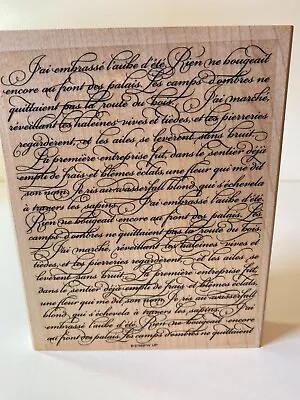 J'ai embrassé l'aube d'été. Rien ne bougeait
encore au front des palais. Les camps d'ombres ne
quittaient pas la route du bois. J'ai marché,
réveillant les haleines vives et tièdes, et les pierreries
regardèrent, et les ailes se levèrent sans bruit.
La première entreprise fut, dans le sentier déjà
empli de frais et blêmes éclats, une fleur qui me dit
son nom. Je ris au wasserfall blond, qui s'échevela
à travers les sapins. J'ai embrassé l'aube d'été.
Rien ne bougeait encore au front des palais. Les
camps d'ombres ne quittaient pas la route du bois.
J'ai marché, réveillant les haleines vives et
tièdes, et les pierreries regardèrent, et les ailes se
levèrent sans bruit. La première entreprise fut,
dans le sentier déjà empli de frais et blêmes éclats,
une fleur qui me dit son nom. Je ris au wasserfall
blond, qui s'échevela à travers les sapins. J'ai
embrassé l'aube d'été. Rien ne bougeait encore
au front des palais. Les camps d'ombres ne quittaient
STAMPIN' UP!